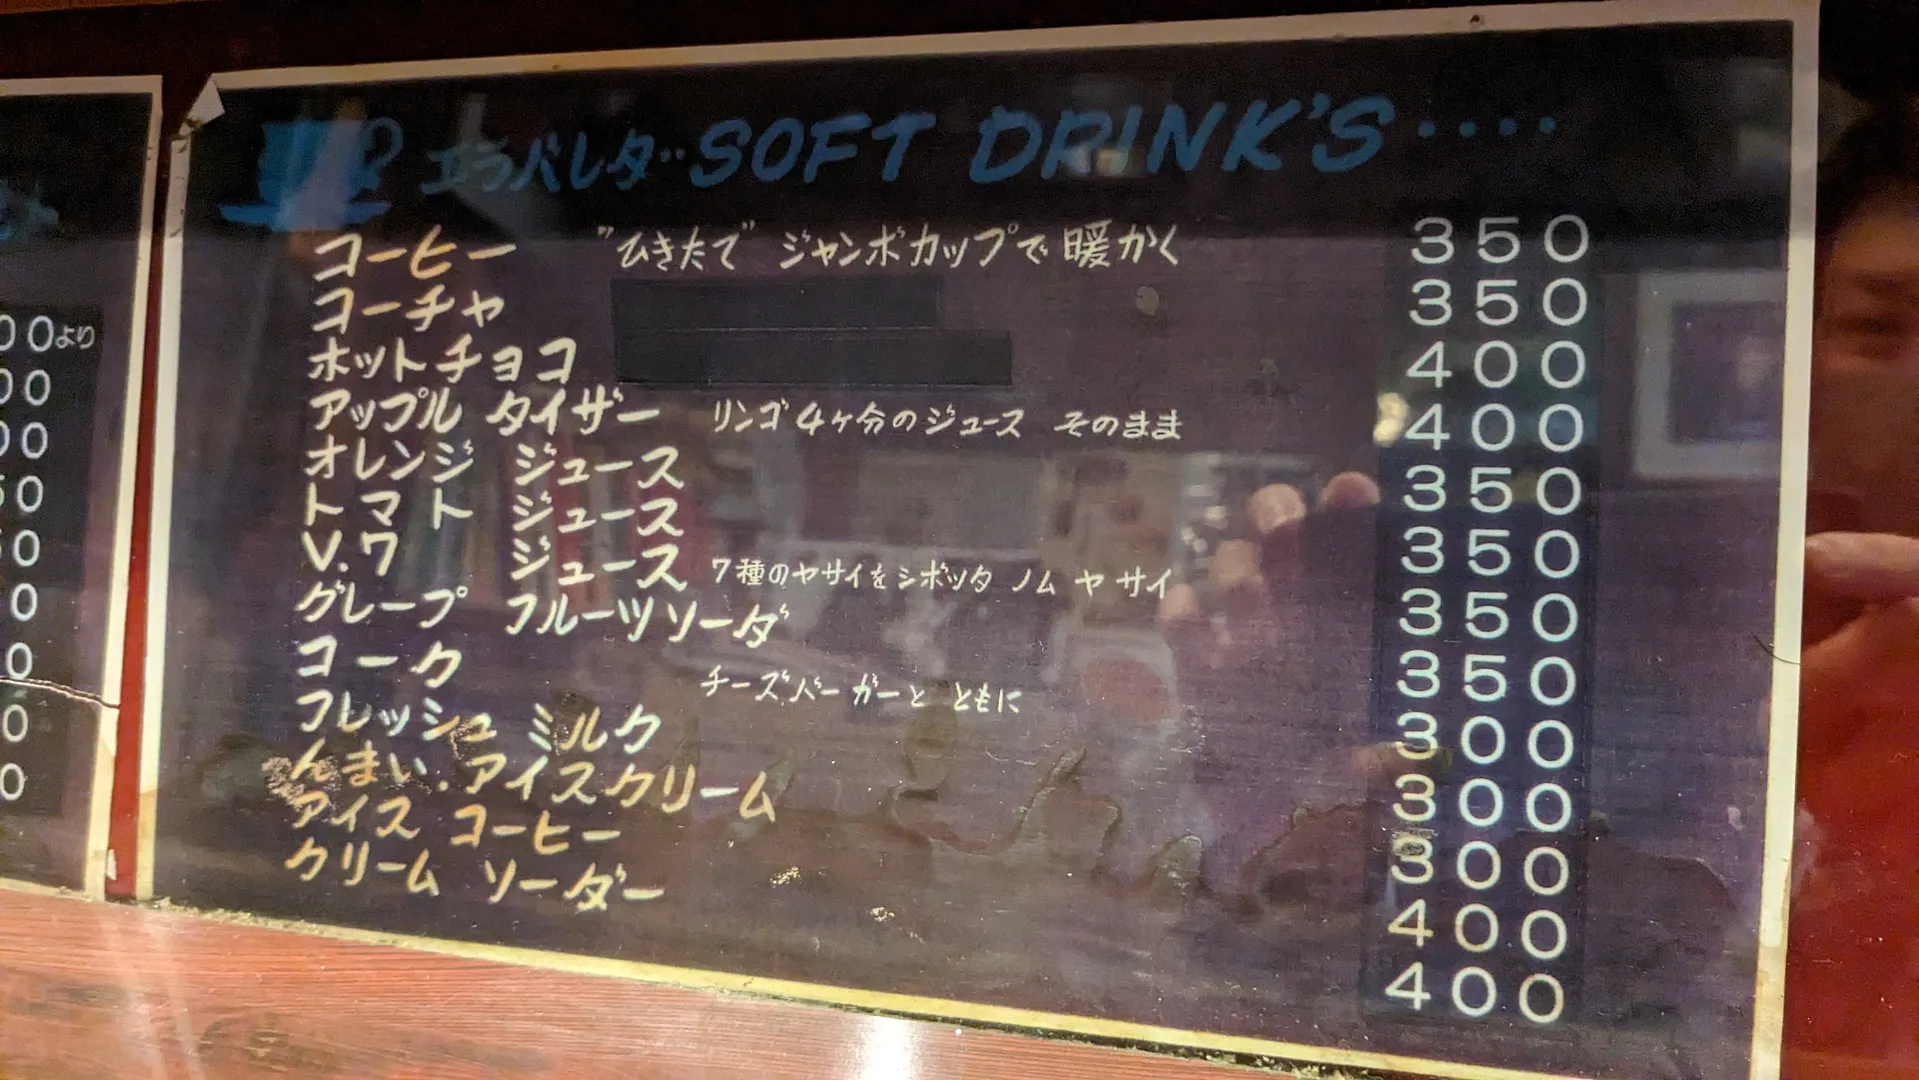 エラバレタ‥SOFT DRINK'S‥‥
コーヒー "ひきたて" ジャンボカップで暖かく 350
コーチャ 350
ホットチョコ 400
アップル タイザー リンゴ4ヶ分のジュース そのまま 400
オレンジ ジュース 350
トマト ジュース 350
V.ワ ジュース 7種のヤサイをシボッタ ノム ヤサイ 350
グレープ フルーツソーダ 350
コーク チーズバーガーと ともに 300
フレッシュ ミルク 300
んまい.アイスクリーム 300
アイス コーヒー 400
クリーム ソーダー 400
00より
00
00
50
50
0
0
0
0